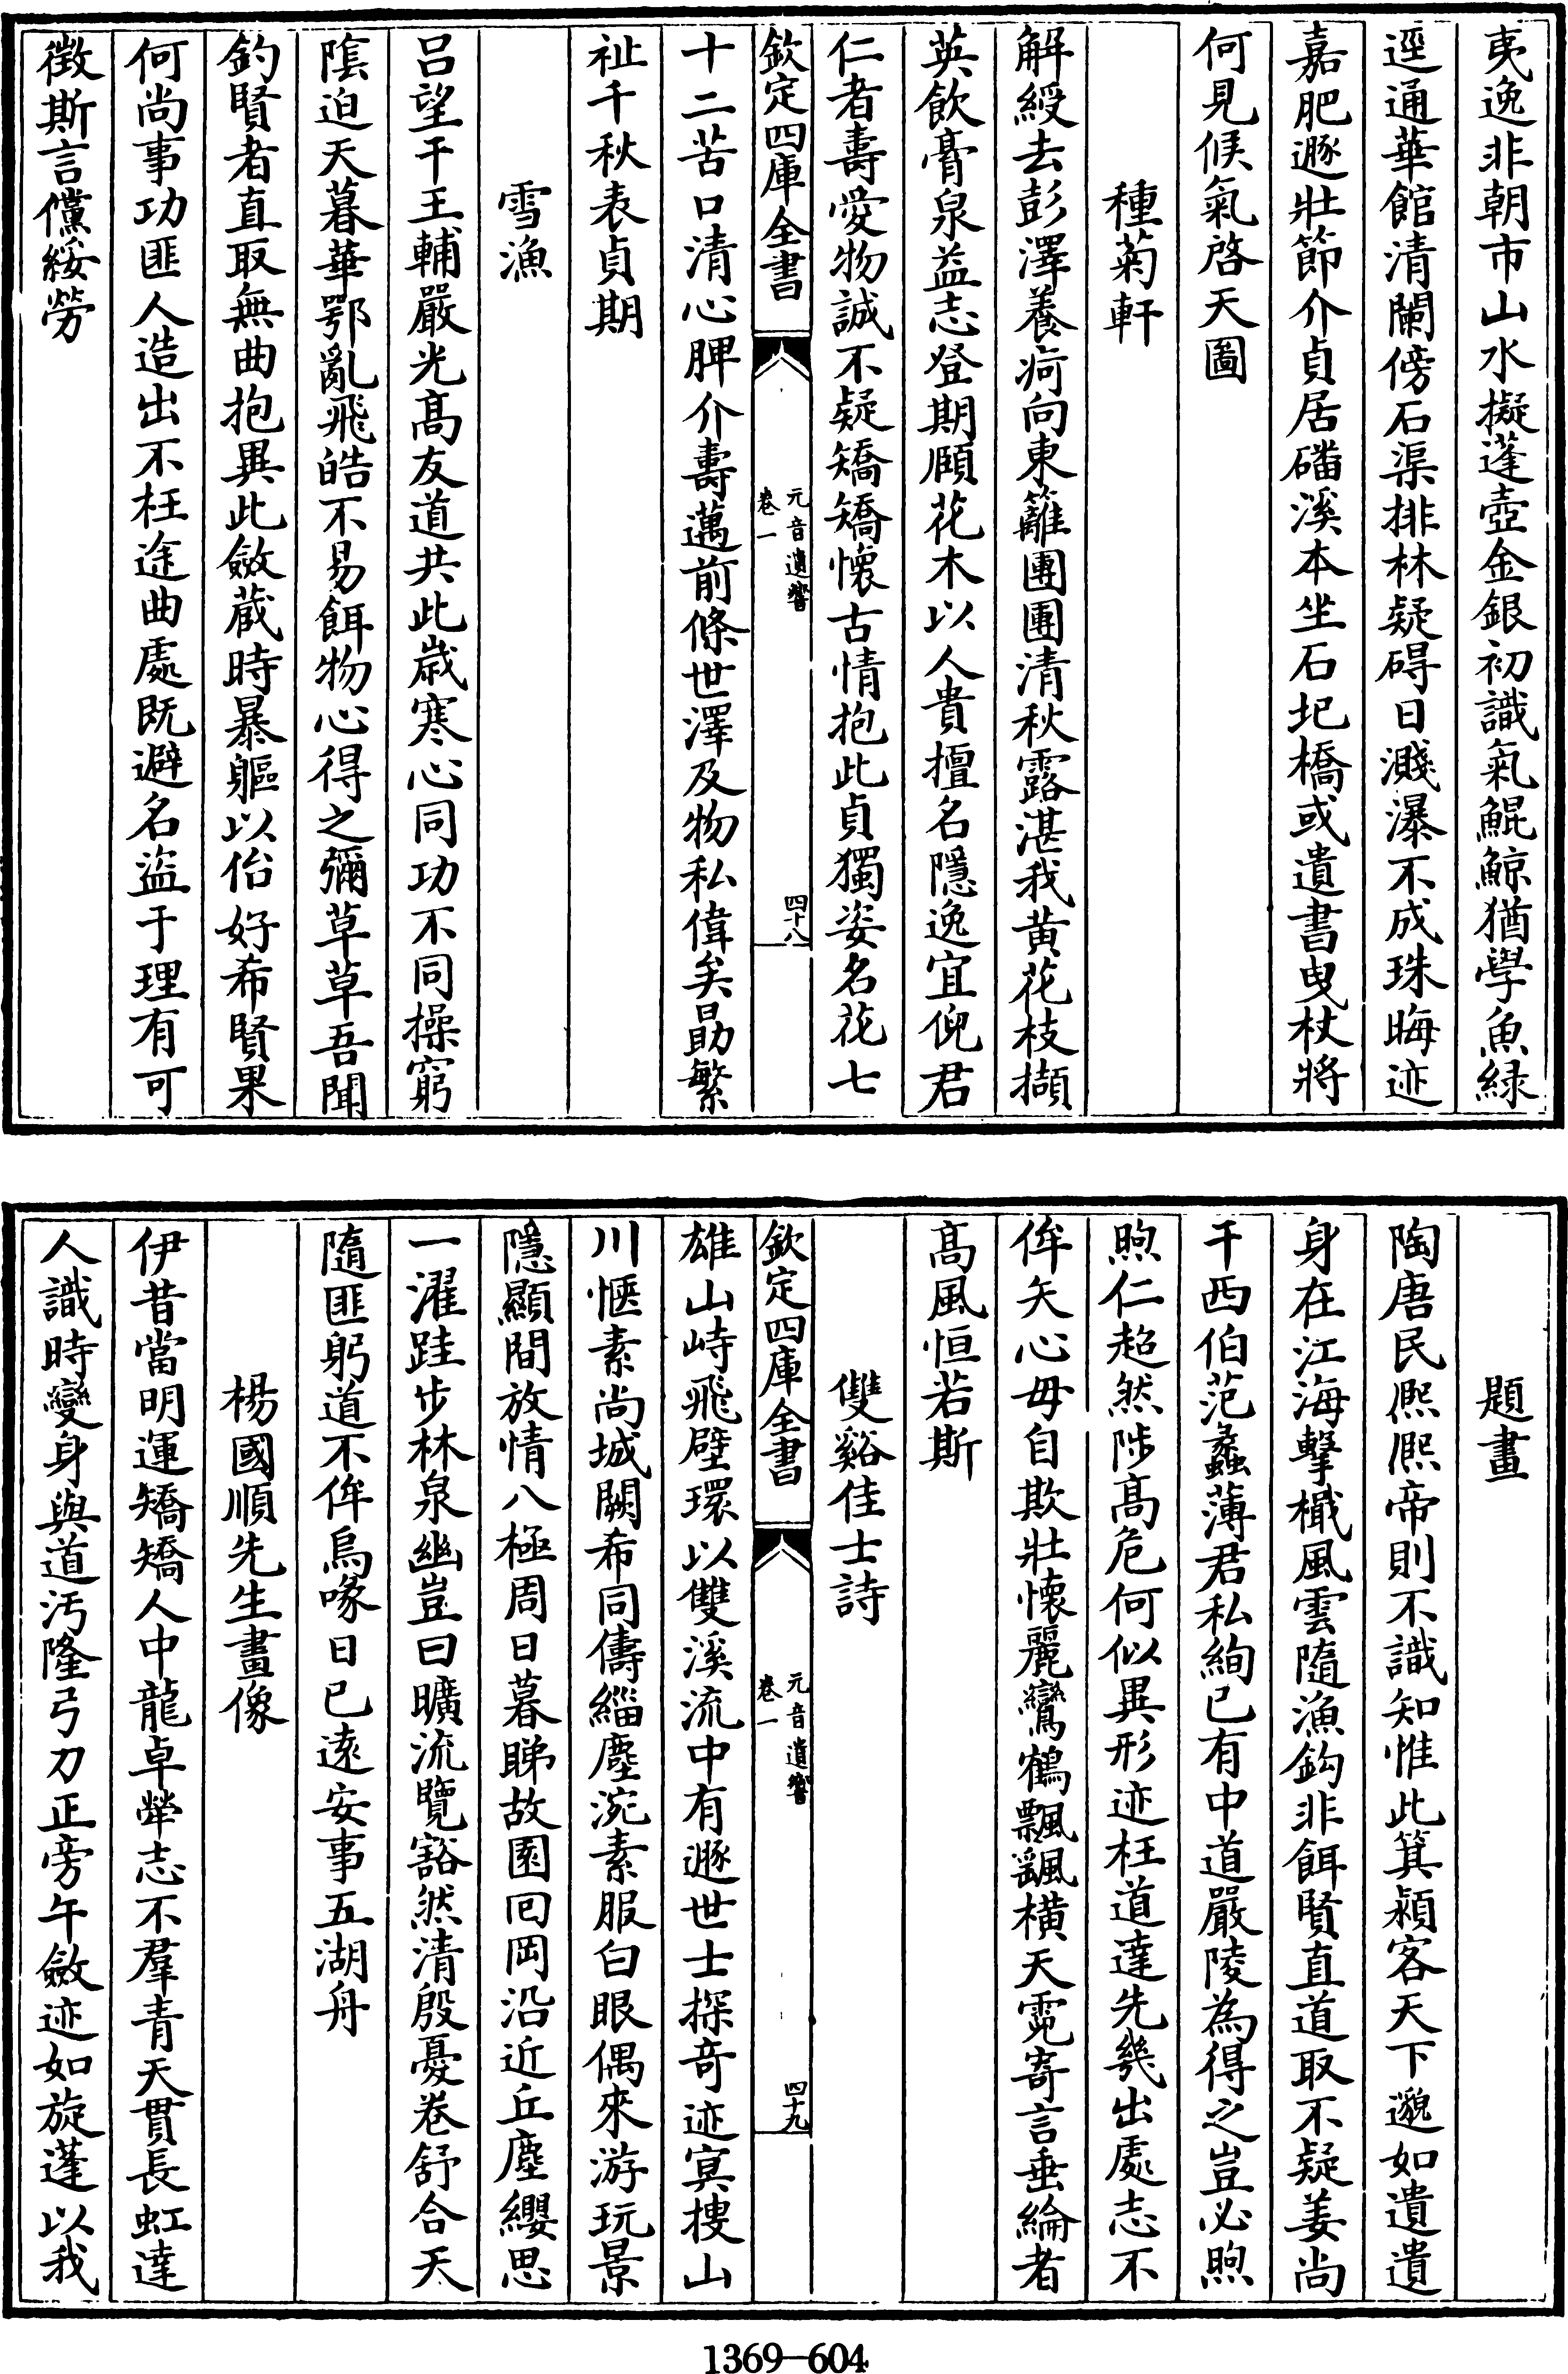 夷逸非朝市山水擬蓬壺金銀初識氣鯤鯨猶學魚緑
逕通華館清闌傍石渠排林疑碍日濺瀑不成珠晦迹
嘉肥遯壯節介貞居磻溪本坐石圯橋或遺書曳杖將
何見候氣啓天圖
種菊軒
解綬去彭澤養疴向東籬團團清秋露湛我黄花枝擷
英飲膏泉益志登期頤花木以人貴擅名隱逸宜俔君
仁者壽愛物誠不疑矯矯懷古情抱此貞獨姿名花七
欽定四庫全書
元音遺響
卷一
四十八
十二苦口清心脾介壽邁前條世澤及物私偉矣勗繁
祉千秋表貞期
雪漁
吕望干王輔嚴光髙友道共此歳寒心同功不同操窮
隂迫天暮華鄂亂飛皓不易餌物心得之彌草草吾聞
釣賢者直取無曲抱異此斂蔵時暴軀以佁好希賢果
何尚事功匪人造出不枉途曲處既避名盜于理有可
徴斯言儻綏勞
題畫
陶唐民熈熈帝則不識知惟此箕潁客天下邈如遺遺
身在江海擊檝風雲隨漁鈎非餌賢直道取不疑姜尚
干西伯范蠡薄君私絢已有中道嚴陵為得之豈必煦
煦仁超然陟髙危何似異形迹枉道達先幾出處志不
侔矢心毋自欺壯懷麗鸞鶴飄颻横天霓寄言垂綸者
髙風恒若斯
雙谿佳士詩
欽定四庫全書
元音遺響
卷一
四十九
雄山峙飛壁環以雙溪流中有遯世士探竒迹寘搜山
川愜素尚城闕希同儔緇塵涴素服白眼偶來游玩景
隱顯間放情八極周日暮睇故園囘岡沿近丘塵纓思
一濯跬步林泉幽豈曰曠流覽豁然清殷憂卷舒合天
隨匪躬道不侔烏喙日已逺安事五湖舟
楊國順先生畫像
伊昔當明運矯矯人中龍卓犖志不羣青天貫長虹達
人識時變身與道汚隆弓刀正旁午斂迹如旋蓬以我
1369—604